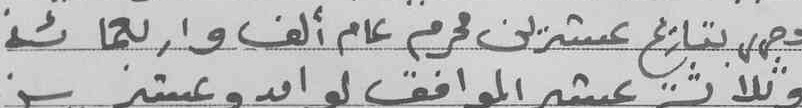 وحرر بتاريخ عشرين محرم عام ألف واربعمائة
وثلاثة عشر الموافق لواحد وعشرين